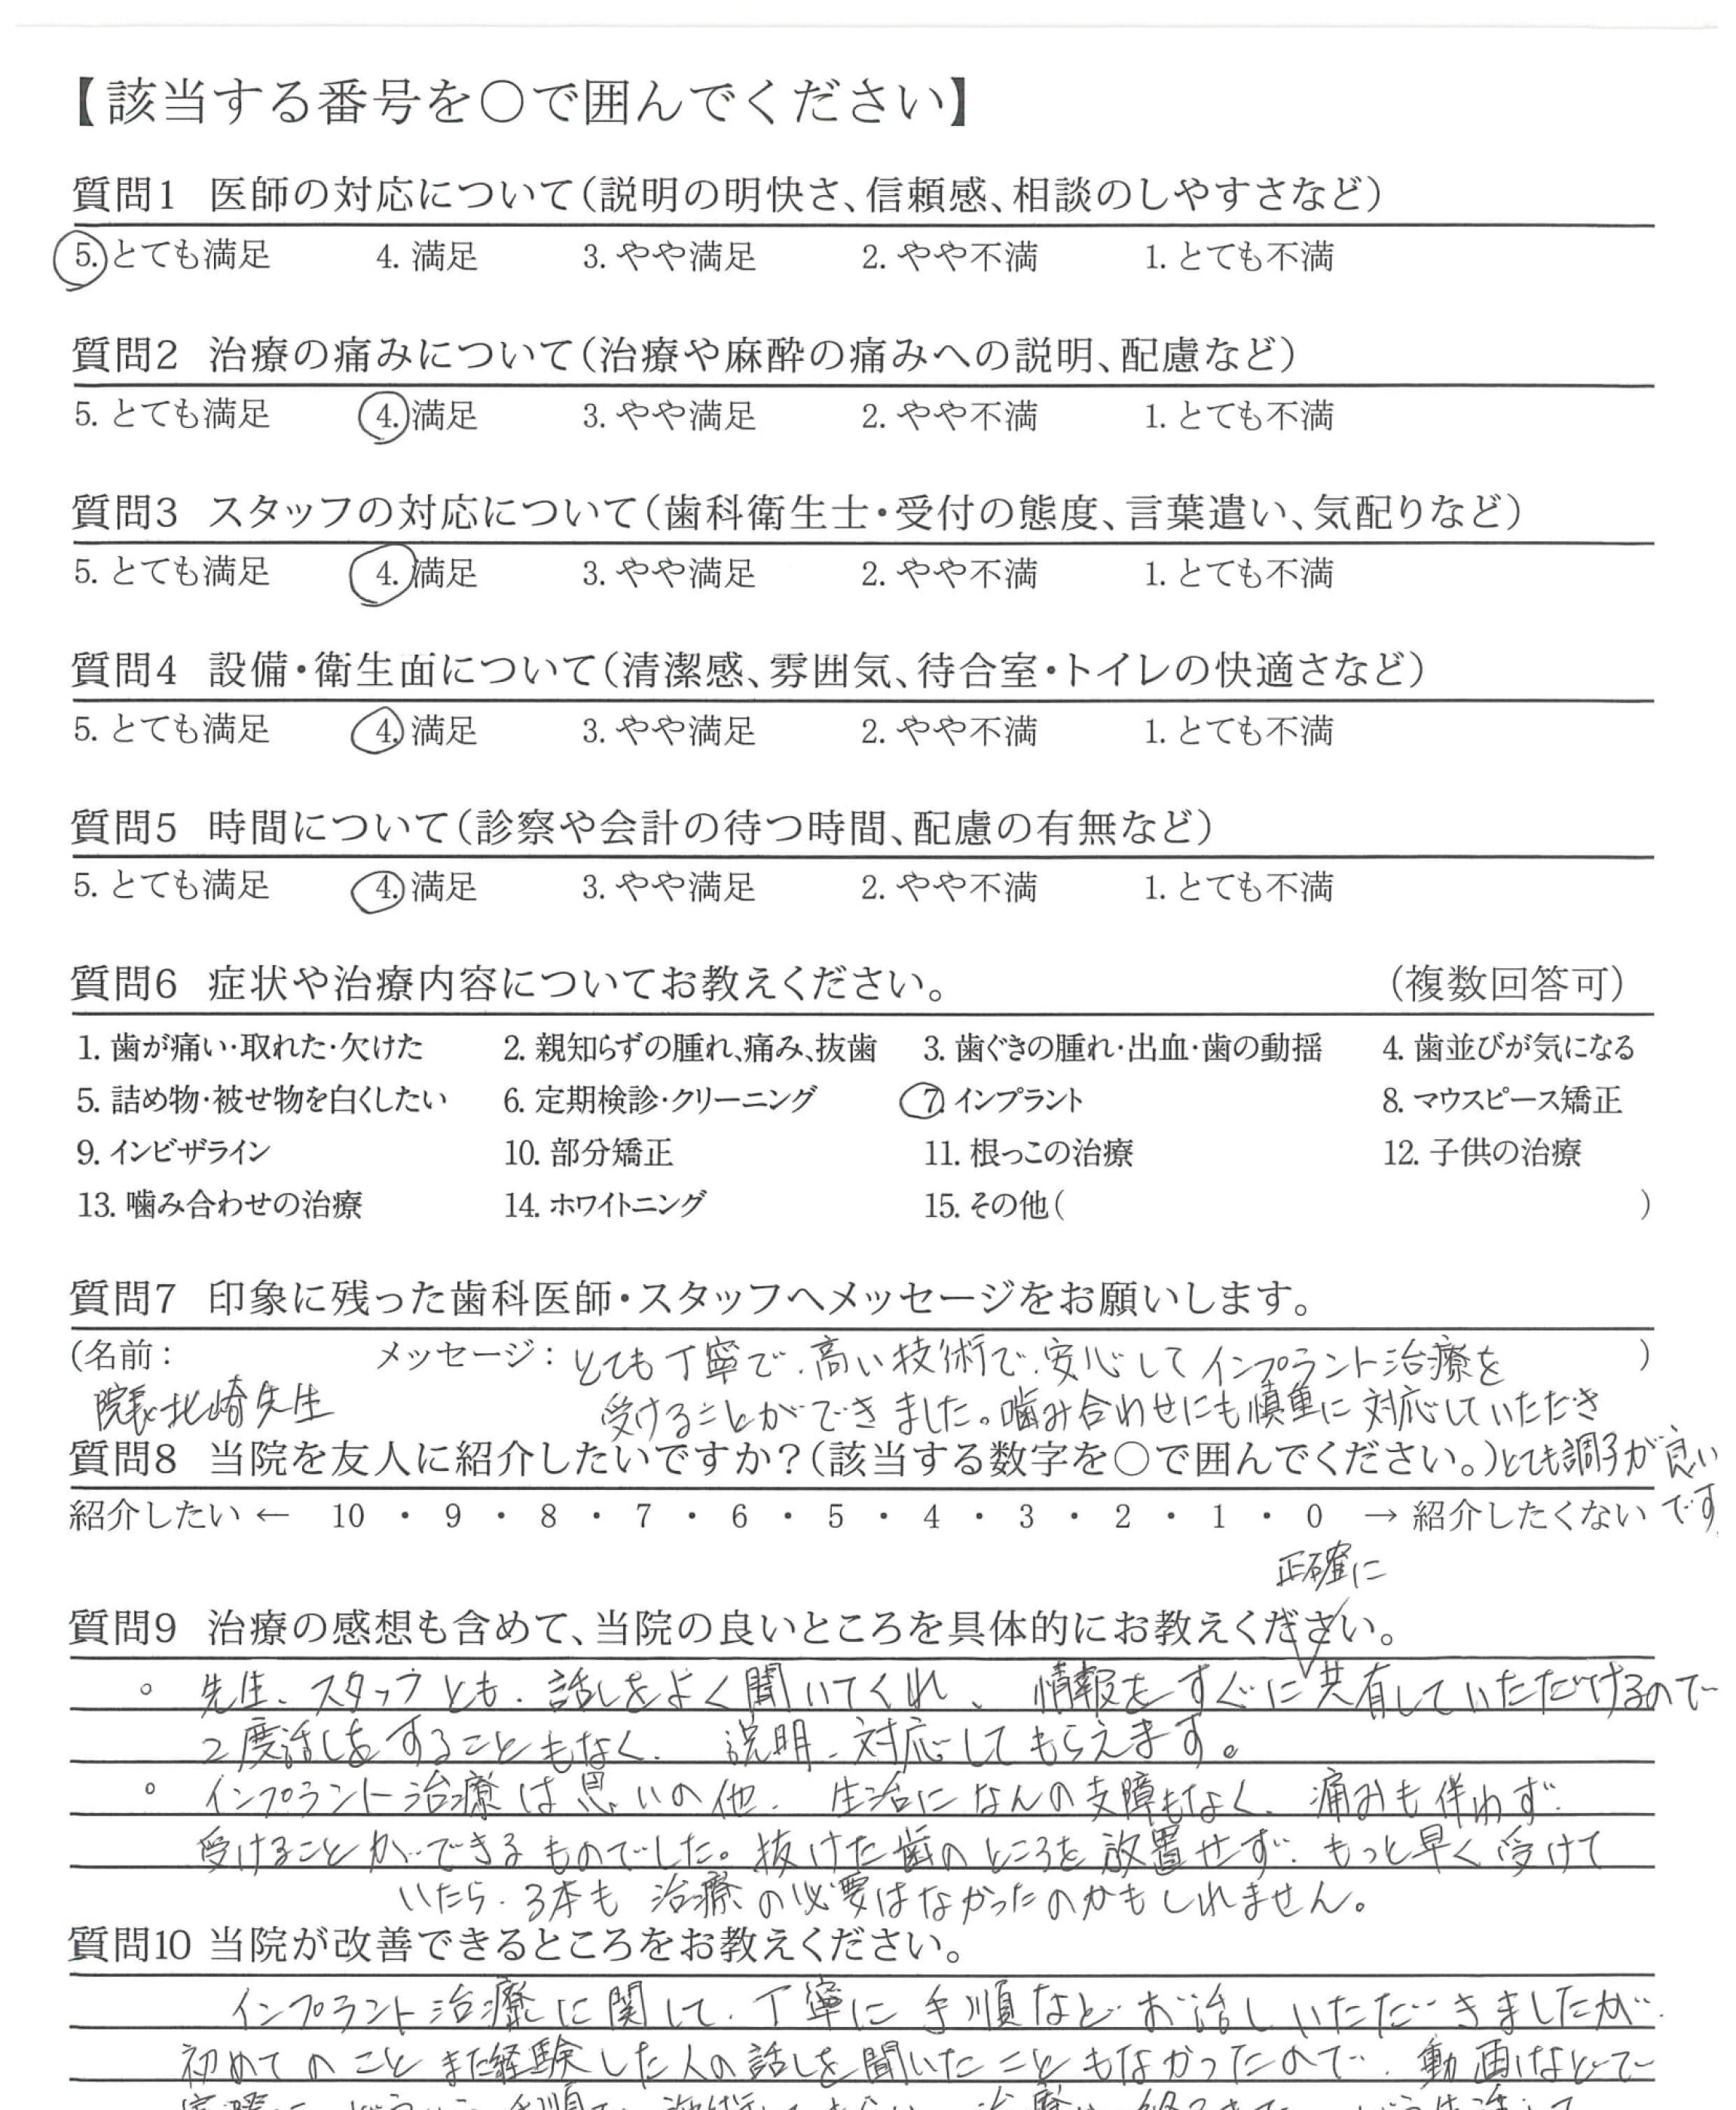 【該当する番号を○で囲んでください】
質問1 医師の対応について(説明の明快さ、信頼感、相談のしやすさなど)
5. とても満足 4. 満足 3. やや満足 2. やや不満 1. とても不満
質問2 治療の痛みについて(治療や麻酔の痛みへの説明、配慮など)
5. とても満足 4. 満足 3. やや満足 2. やや不満 1. とても不満
質問3 スタッフの対応について(歯科衛生士・受付の態度、言葉遣い、気配りなど)
5. とても満足 4. 満足 3. やや満足 2. やや不満 1. とても不満
質問4 設備・衛生面について(清潔感、雰囲気、待合室・トイレの快適さなど)
5. とても満足 4. 満足 3. やや満足 2. やや不満 1. とても不満
質問5 時間について(診察や会計の待つ時間、配慮の有無など)
5. とても満足 4. 満足 3. やや満足 2. やや不満 1. とても不満
質問6 症状や治療内容についてお教えください。 (複数回答可)
1. 歯が痛い・取れた・欠けた 2. 親知らずの腫れ、痛み、抜歯 3. 歯ぐきの腫れ・出血・歯の動揺 4. 歯並びが気になる
5. 詰め物・被せ物を白くしたい 6. 定期検診・クリーニング 7. インプラント 8. マウスピース矯正
9. インビザライン 10. 部分矯正 11. 根っこの治療 12. 子供の治療
13. 噛み合わせの治療 14. ホワイトニング 15. その他( )
質問7 印象に残った歯科医師・スタッフへメッセージをお願いします。
(名前: メッセージ: とても丁寧で、高い技術で、安心してインプラント治療を )
院長 北崎先生 受けることができました。噛み合わせにも慎重に対応していただき
質問8 当院を友人に紹介したいですか?(該当する数字を○で囲んでください。) とても調子が良い
紹介したい ← 10 ・ 9 ・ 8 ・ 7 ・ 6 ・ 5 ・ 4 ・ 3 ・ 2 ・ 1 ・ 0 → 紹介したくない です。
正確に
質問9 治療の感想も含めて、当院の良いところを具体的にお教えください。
。先生、スタッフとも、話しをよく聞いてくれ、情報をすぐに共有していただけるので
2度話しをすることもなく、説明、対応してもらえます。
。インプラント治療は思いの他、生活になんの支障もなく、痛みも伴わず
受けることができるものでした。抜けた歯のところを放置せず、もっと早く受けて
いたら、3本も治療の必要はなかったのかもしれません。
質問10 当院が改善できるところをお教えください。
インプラント治療に関して、丁寧に手順などお話しいただきましたが、
初めてのこと、また経験した人の話しを聞いたこともなかったので、動画などで